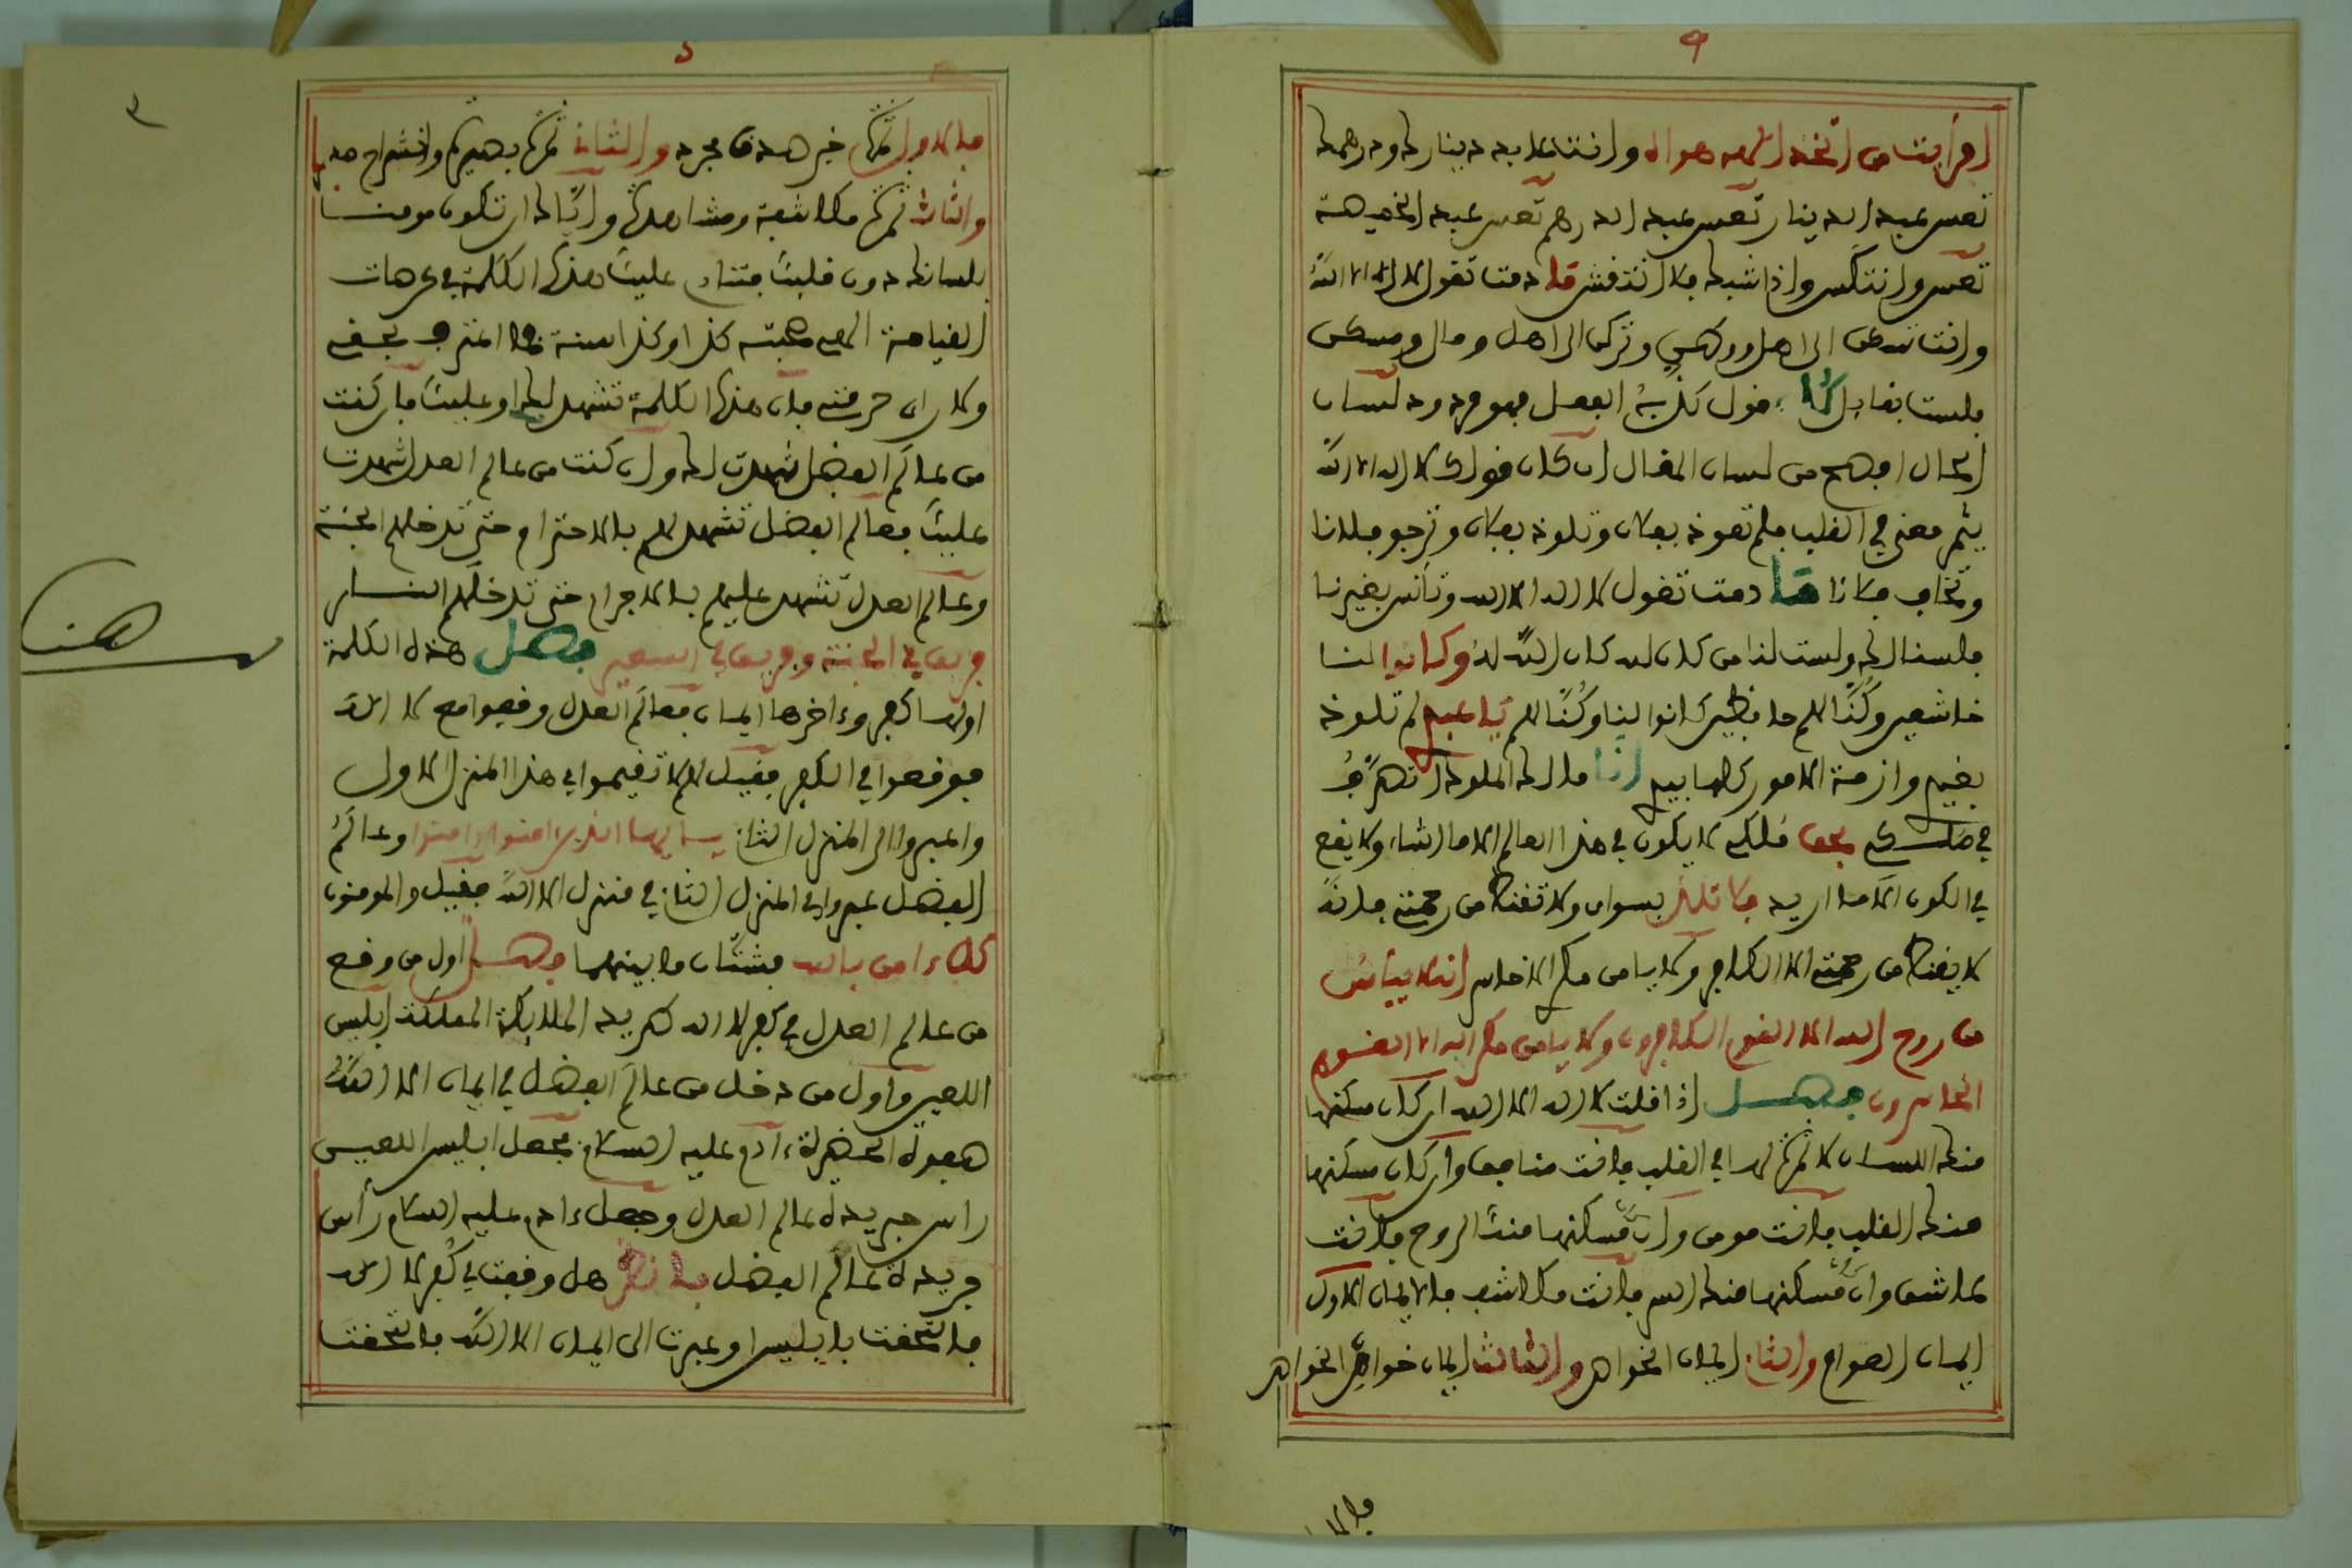 افرأيت من اتخذ إلهه هواه وانت عابد دينارك ودرهمك
تعس عبد الدينار تعس عبد الدرهم تعس عبد الخميصة
تعس وانتكس واذا شيك فلا انتقش ما دمت تقول لا اله الا الله
وانت الى اهل وتركن الى اهل ومال ومسكن
فلست بقايل قول كذبه الفعل فهو مردود لسان
الحال افصح من لسان المقال ان كان قولك لا اله الا الله
يثمر معنى في القلب فلم تعوذ بفلان وتلوذ بفلان وترجو فلانا
وتخاف فلانا ما دمت تقول لا اله الا الله وتأنس بغيرنا
فلسنا لك ولست لنا من كان لله كان الله له وكانوا لنا
خاشعين وكنا لهم حافظين كانوا لنا وكنا لهم يا عبدي لم تلوذ
بغيري وازمة الامور كلها بيدي انا مالك الملوك اتصرف
في ملكي بحق ملكي لا يكون في هذا العالم الا ما اشاء ولا يقع
في الكون الا ما اريد فلا تلذ بسواي ولا تقنط من رحمتي فانه
لا يقنط من رحمتي الا الكافر ولا يامن مكري الا الخاسر انه لا ييأس
من روح الله الا القوم الكافرون ولا يامن مكر الله الا القوم
الخاسرون فصل اذا قلت لا اله الا الله ان كان مسكنها
منك اللسان لا ثمرة لها في القلب فانت منافق وان كان مسكنها
منك القلب فانت مومن وان مسكنها منك الروح فانت
عاشق وان مسكنها منك السر فانت مكاشف فالايمان الاول
ايمان العوام والثاني ايمان الخواص والثالث ايمان خواص الخواص
فالا
٣
فالاول ثمرة خبر صدق مجرد والثاني ثمرة بصيرة وانشراح صدر
والثالث ثمرة مكاشفة ومشاهدة واياك ان تكون مومنا
بلسانك دون قلبك فتنادي عليك هذه الكلمة في عرصات
القيامة الهي صحبته كذا وكذا سنة فما اعترف بحقي
ولا رعى حرمتي فان هذه الكلمة تشهد لك او عليك فان كنت
من عالم الفضل شهدت لك وان كنت من عالم العدل شهدت
عليك فعالم الفضل تشهد لهم بالاحترام حتى تدخلهم الجنة
وعالم العدل تشهد عليهم بالاجرام حتى تدخلهم النار
فريق في الجنة وفريق في السعير فصل هذه الكلمة
اولها كفر وءاخرها ايمان فعالم العدل وقفوا مع لا اله
فوقعوا في الكفر فقيل لهم لا تقيموا في هذا المنزل الاول
واعبروا الى المنزل الثاني يا ايها الذين امنوا امنوا وعالم
الفضل عبروا الى المنزل الثاني في منزل الا الله فقيل والمومنون
كل ءامن بالله فشتان ما بينهما فصل اول من وقع
من عالم العدل في كفر لا اله طريد الملايكة ابليس
اللعين واول من دخل من عالم الفضل في ايمان الا الله
صفوة الحضرة ءادم عليه السلام فجعل ابليس اللعين
راس جريدة عالم العدل وجعل ءادم عليه السلام رأس
جريدة عالم الفضل فانظر هل وقفت في كفر لا اله
فالتحقت بابليس او عبرت الى ايمان الا الله فالتحقت